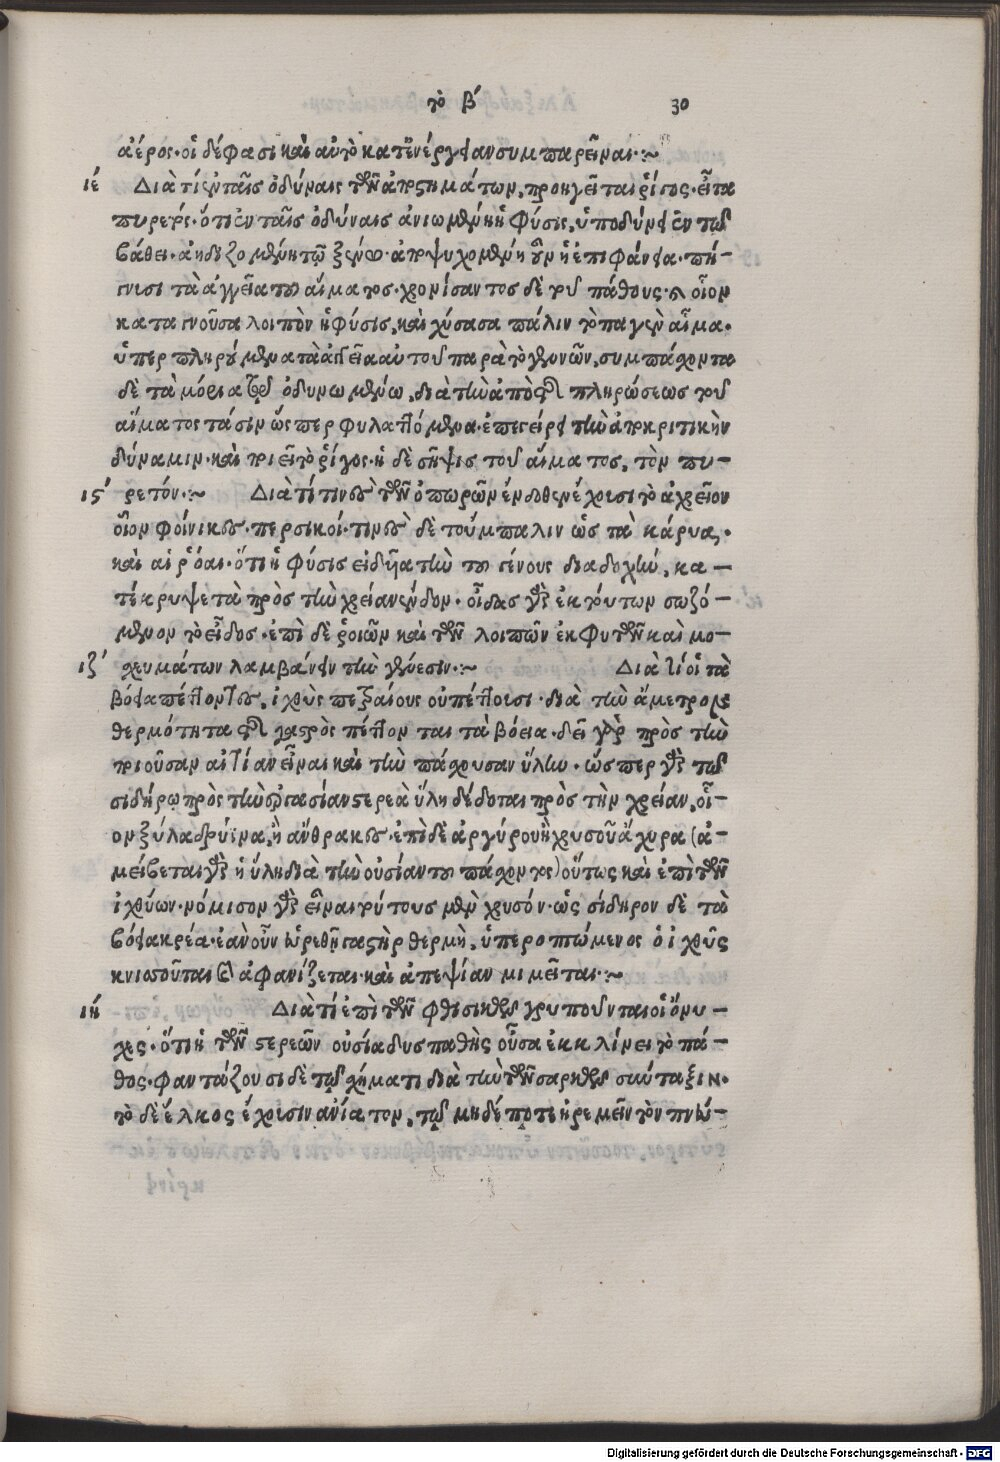 τὸ β´ 30
ἀέρος· οἱ δέ φασι καὶ αὐτὸ κατ' ἐνέργειαν συμπαρεῖναι·~
ιέ Διὰ τί ἐν ταῖς ὀδύναις τῶν ἀποστημάτων, προηγεῖται ῥίγος· εἶτα
πυρετός· ὅτι ἐν ταῖς ὀδύναις ἀνιωμένη ἡ φύσις, ὑποδύνει ἐν τῷ
βάθει· ἀηδιζομένη τῷ ξένῳ· ἀποψυχομένη οὖν ἡ ἐπιφάνεια· πή-
γνυσι τὰ ἀγγεῖα τοῦ αἵματος· χρονίσαντος δὲ τοῦ πάθους· οἷον
καταγνοῦσα λοιπὸν ἡ φύσις, καὶ χύσασα πάλιν τὸ παγὲν αἷμα·
ὑπερπληρούμενα τὰ ἀγγεῖα αὐτοῦ παρὰ τὸ χυνῶν, συμπάσχοντα
δὲ τὰ μόρια τῷ ὀδυνωμένῳ, διὰ τὴν ἀπὸ τῆς πληρώσεως τοῦ
αἵματος τάσιν ὥσπερ φυλαττόμενα· ἐπεγείρει τὴν ἀποκριτικὴν
δύναμιν· καὶ ποιεῖ τὸ ῥίγος· ἡ δὲ σῆψις τοῦ αἵματος, τὸν πυ-
ις´ ρετόν·~ Διὰ τί τινὲς τῶν ὀπωρῶν ἔνδωθεν ἔχουσι τὸ ἀχρεῖον
οἷον φοίνικες· περσικοί· τινὲς δὲ τοὔμπαλιν ὡς τὰ κάρυα,·
καὶ αἱ ῥόαι· ὅτι ἡ φύσις εἰδυῖα τὴν τοῦ γένους διαδοχὴν, κα-
τέκρυψε τὰ πρὸς τὴν χρείαν ἔνδον· οἶδας γὰρ ἐκ τούτων σωζό-
μενον τὸ εἶδος· ἐπὶ δὲ ῥοιῶν καὶ τῶν λοιπῶν ἐκ φυτῶν καὶ μο-
ιζ´ σχευμάτων λαμβάνειν τὴν γένεσιν·~ Διὰ τί οἱ τὰ
βόεια πέττοντες, ἰχθῦς πετραίους οὐ πέττουσι· διὰ τὴν ἄμετρον
θερμότητα τῆς γαστρὸς πέττονται τὰ βόεια· δεῖ γὰρ πρὸς τὴν
ποιοῦσαν αἰτίαν εἶναι καὶ τὴν πάσχουσαν ὕλην· ὥσπερ γὰρ τῷ
σιδήρῳ πρὸς τὴν ἐργασίαν στερεὰ ὕλη δέδοται πρὸς τὴν χρείαν, οἷ-
ον ξύλα δρύϊνα, ἢ ἄνθρακες· ἐπὶ δὲ ἀργύρου ἢ χρυσοῦ ἄχυρα (ἀ-
μείβεται γὰρ ἡ ὕλη διὰ τὴν οὐσίαν τοῦ πάσχοντος) οὕτως καὶ ἐπὶ τῶν
ἰχθύων· νόμισον γὰρ εἶναι τούτους μὲν χρυσόν· ὡς σίδηρον δὲ τὰ
βόεια κρέα· ἐὰν οὖν εὑρεθῇ γαστὴρ θερμὴ, ὑπεροπτώμενος ὁ ἰχθῦς
κνισοῦται καὶ ἀφανίζεται· καὶ ἀπεψίαν μιμεῖται·~
ιή Διὰ τί ἐπὶ τῶν φθισικῶν γρυποῦνται οἱ ὄνυ-
χες· ὅτι ἡ τῶν στερεῶν οὐσία δυσπαθὴς οὖσα ἐκκλίνει τὸ πά-
θος· φαντάζουσι δὲ τῷ σχήματι διὰ τὴν τῶν σαρκῶν σύνταξιν·
τὸ δὲ ἕλκος ἔχουσιν ἀνίατον, τῷ μηδέποτε ἠρεμεῖν τὸν πνεύ-